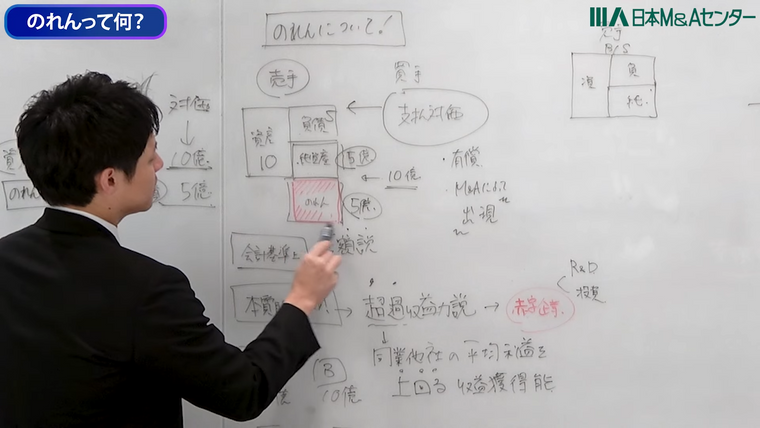 のれんって何?
日本M&Aセンター
のれんについて!
売手
買手
対価
↓
10億
5億
資産
10
負債 5
純資産
5億
のれん
5億
←
支払対価
← 10億
・有償
・M&Aによって
出現
売手
B/S
資
負
純
会計基準上
額説
→ 超過収益力説 → 赤字企業
R&D
投資
↓
同業他社の平均利益を
上回る収益獲得能
B
10億